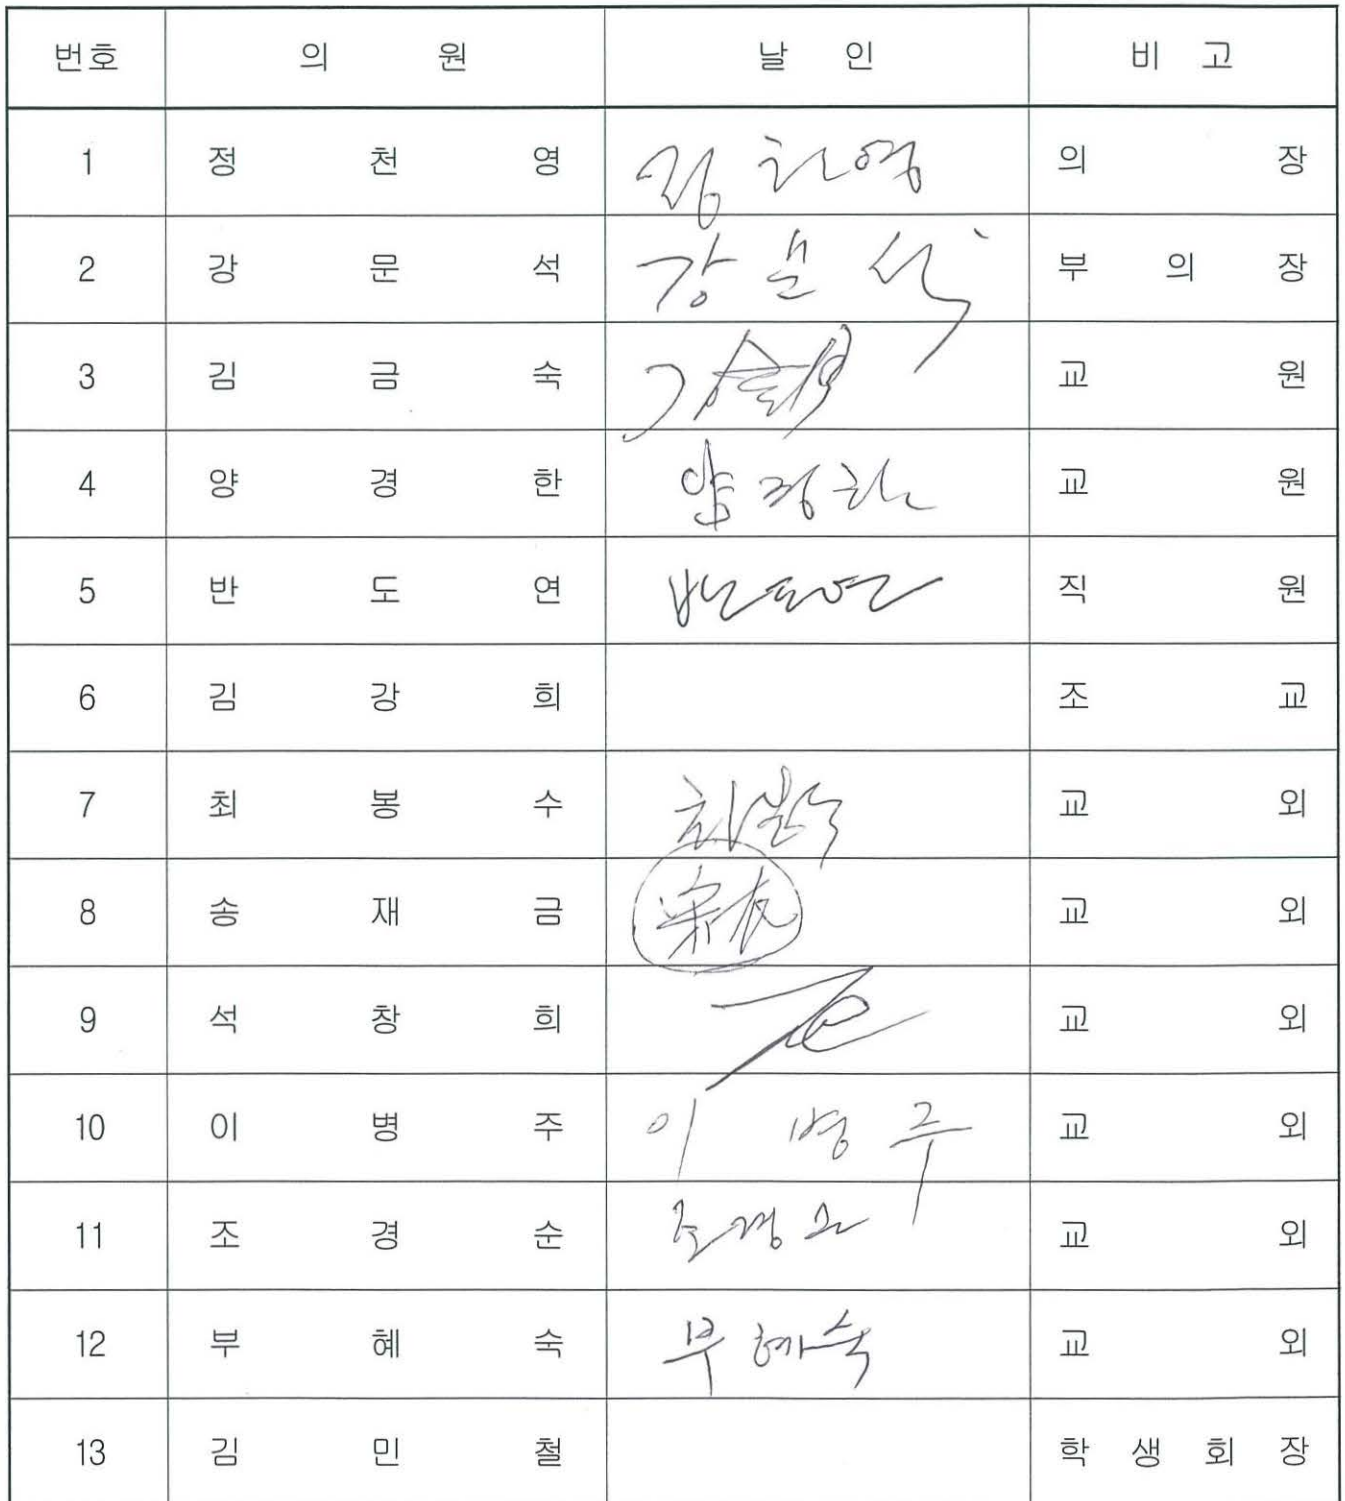 번호 의 원 날 인 비 고
1 정 천 영 정 천 영 의 장
2 강 문 석 강 문 석 부 의 장
3 김 금 숙 교 원
4 양 경 한 양 경 한 교 원
5 반 도 연 반도연 직 원
6 김 강 희 조 교
7 최 봉 수 최봉수 교 외
8 송 재 금 교 외
9 석 창 희 교 외
10 이 병 주 이 병 주 교 외
11 조 경 순 조 경 순 교 외
12 부 혜 숙 부 혜숙 교 외
13 김 민 철 학 생 회 장